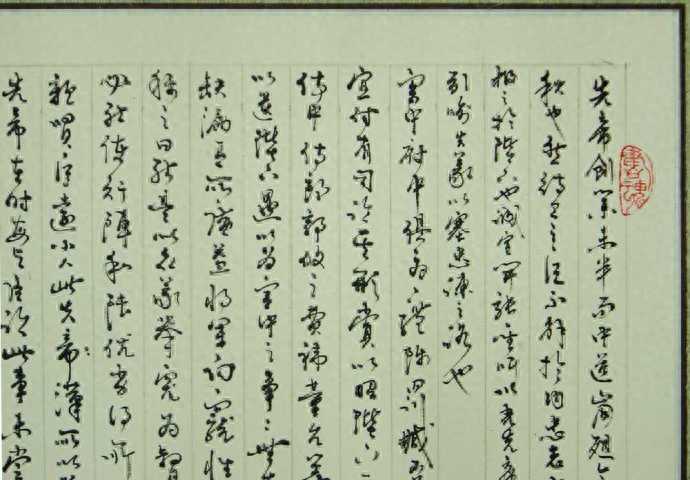 先帝創業未半而中道崩殂今
秋也然侍衛之臣不懈於內忠志
報之於陛下也誠宜開張聖聽以光先帝
引喻失義以塞忠諫之路也
宮中府中俱為一體陟罰臧否
宜付有司論其刑賞以昭陛下
侍中侍郎郭攸之費禕董允等
以遺陛下愚以為宮中之事事無
缺漏有所廣益將軍向寵性
稱之曰能是以眾議舉寵為督
必能使行陣和睦優劣得所
親賢臣遠小人此先帝漢所以
先帝在時每與臣論此事未嘗